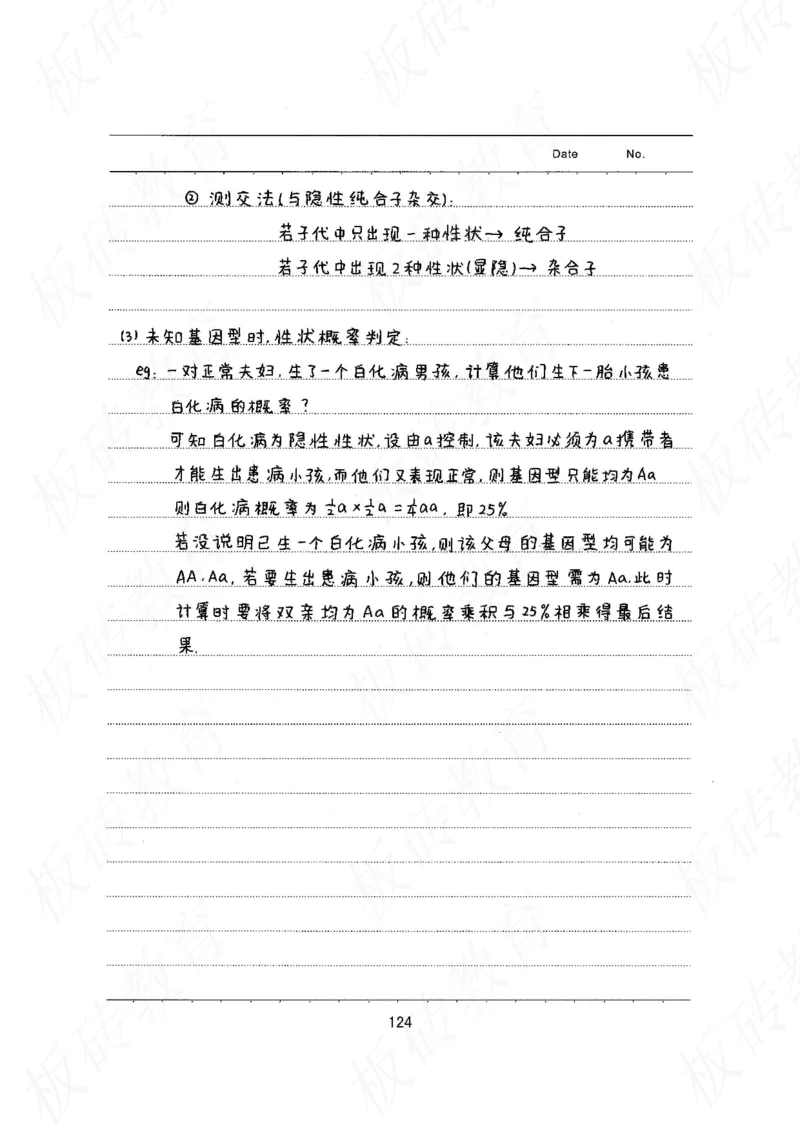 Date No.
② 测交法(与隐性纯合子杂交):
若子代中只出现一种性状→ 纯合子
若子代中出现2种性状(显隐)→ 杂合子
(3) 未知基因型时,性状概率判定:
eg: 一对正常夫妇,生了一个白化病男孩,计算他们生下一胎小孩患
白化病的概率?
可知白化病为隐性性状,设由a控制,该夫妇必须为a携带者
才能生出患病小孩,而他们又表现正常,则基因型只能均为Aa
则白化病概率为 ½a×½a=¼aa,即25%
若没说明已生一个白化病小孩,则该父母的基因型均可能为
AA、Aa,若要生出患病小孩,则他们的基因型需为Aa,此时
计算时要将双亲均为Aa的概率乘积与25%相乘得最后结
果.
124
板砖教育